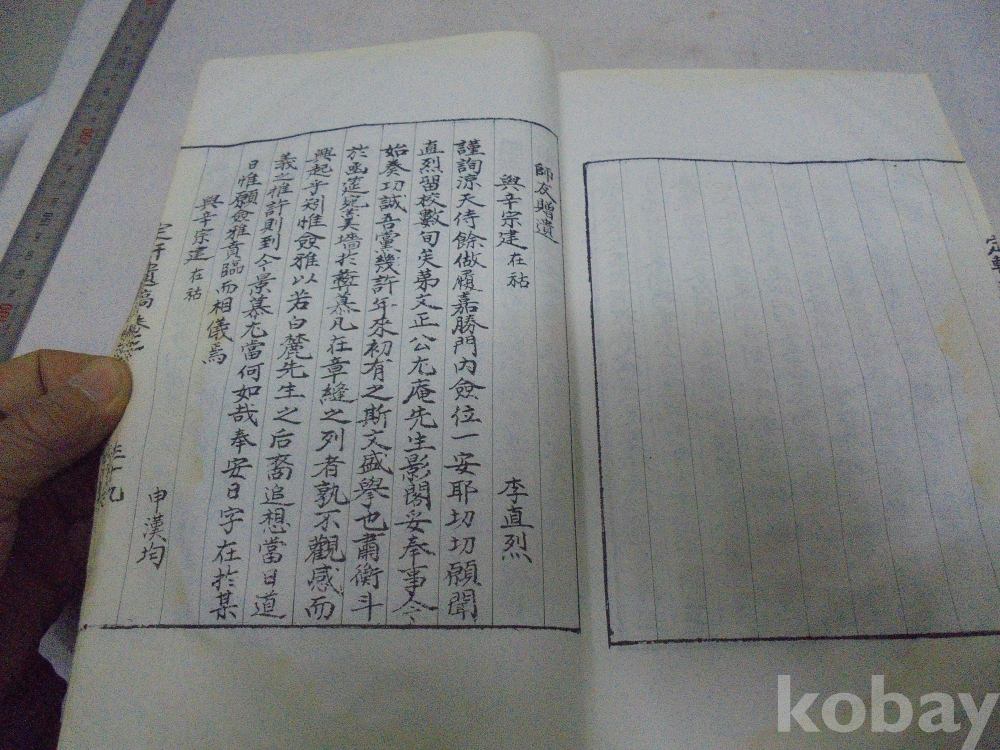 師友贈遺
與辛宗建 在祜 李直烈
謹詢涼天侍餘做履嘉勝門內僉位一安耶切切願聞
直烈留校數旬矣第文正公尤庵先生影閣妥奉事今
始奏功誠吾黨幾許年來初有之斯文盛擧也肅衡斗
於函筵見羹墻於慕凡在章縫之列者孰不觀感而
興起乎矧惟僉雅以若白麓先生之后裔追想當日道
義之推許則到今景慕尤當何如哉奉安日字在於某
日惟願僉雅賁臨而相儀焉
與辛宗建 在祜
申漢均
遺稿 卷之
kobay